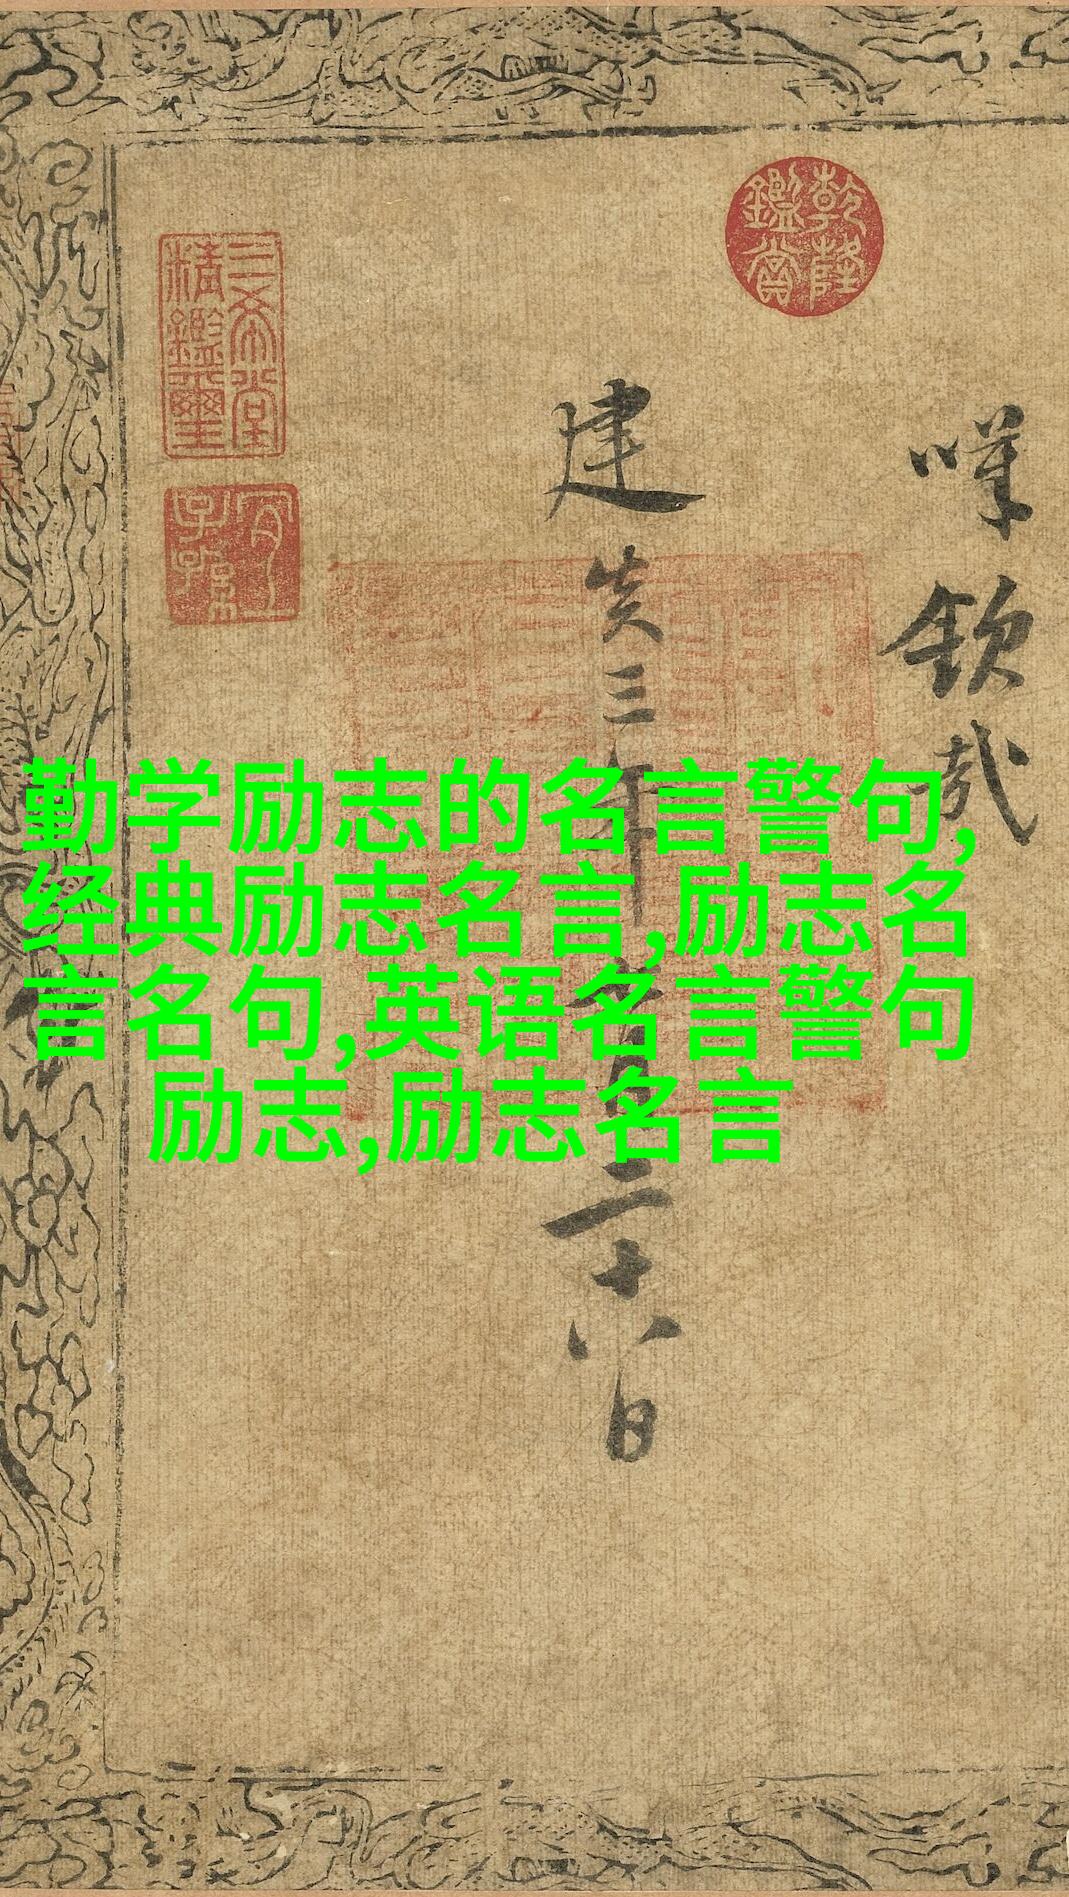 勤学励志的名言警句,
经典励志名言,励志名
言名句,英语名言警句
励志,励志名言
乾隆鑑賞
欽哉
建炎三年
二十八日
三希堂精鑑璽
宜子孫